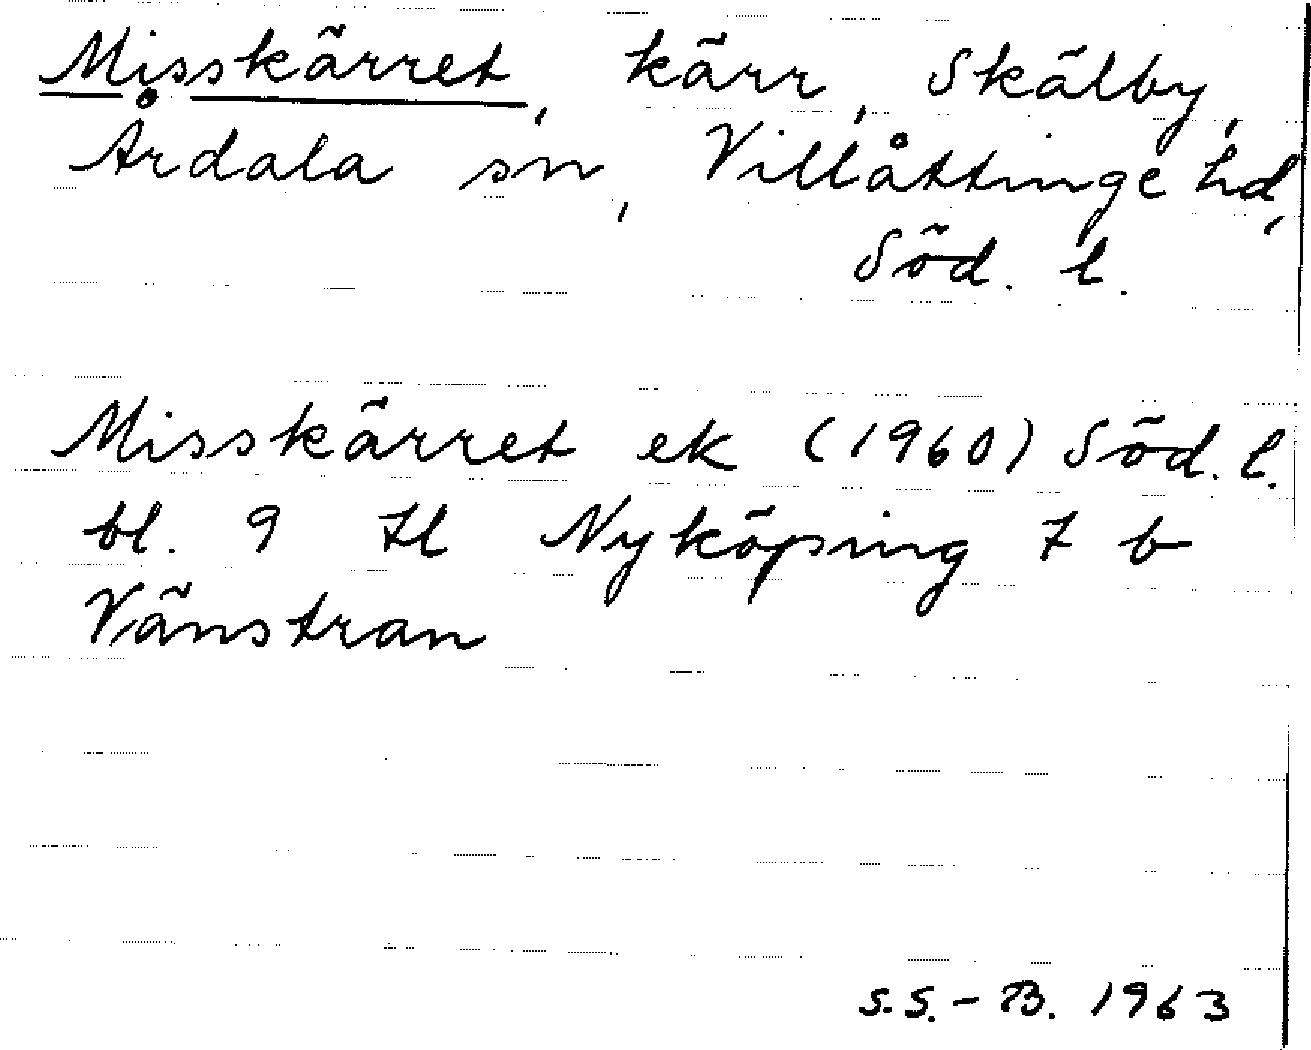 Misskärret, kärr, Skälby,
Årdala sn, Villåttinge hd,
Söd. l.
Misskärret ek (1960) Söd. l.
bl. 9 tl Nyköping 7 b
Vänstran
S.S.-B. 1963